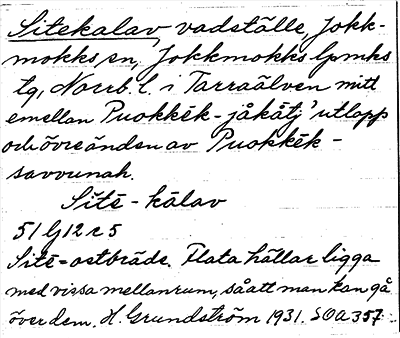 Sitekalav, vadställe, Jokk-
mokks sn, Jokkmokks lpmks
tg, Norrb. l. i Tarraälven mitt
emellan Puokkēk-jåkåtj' utlopp
och övre änden av Puokkēk-
savvunah.
Sitē-kālav
51 G 12 c 5
Sitē = ostbräde. Flata hällar ligga
med vissa mellanrum, så att man kan gå
över dem. H. Grundström 1931. SOA 357